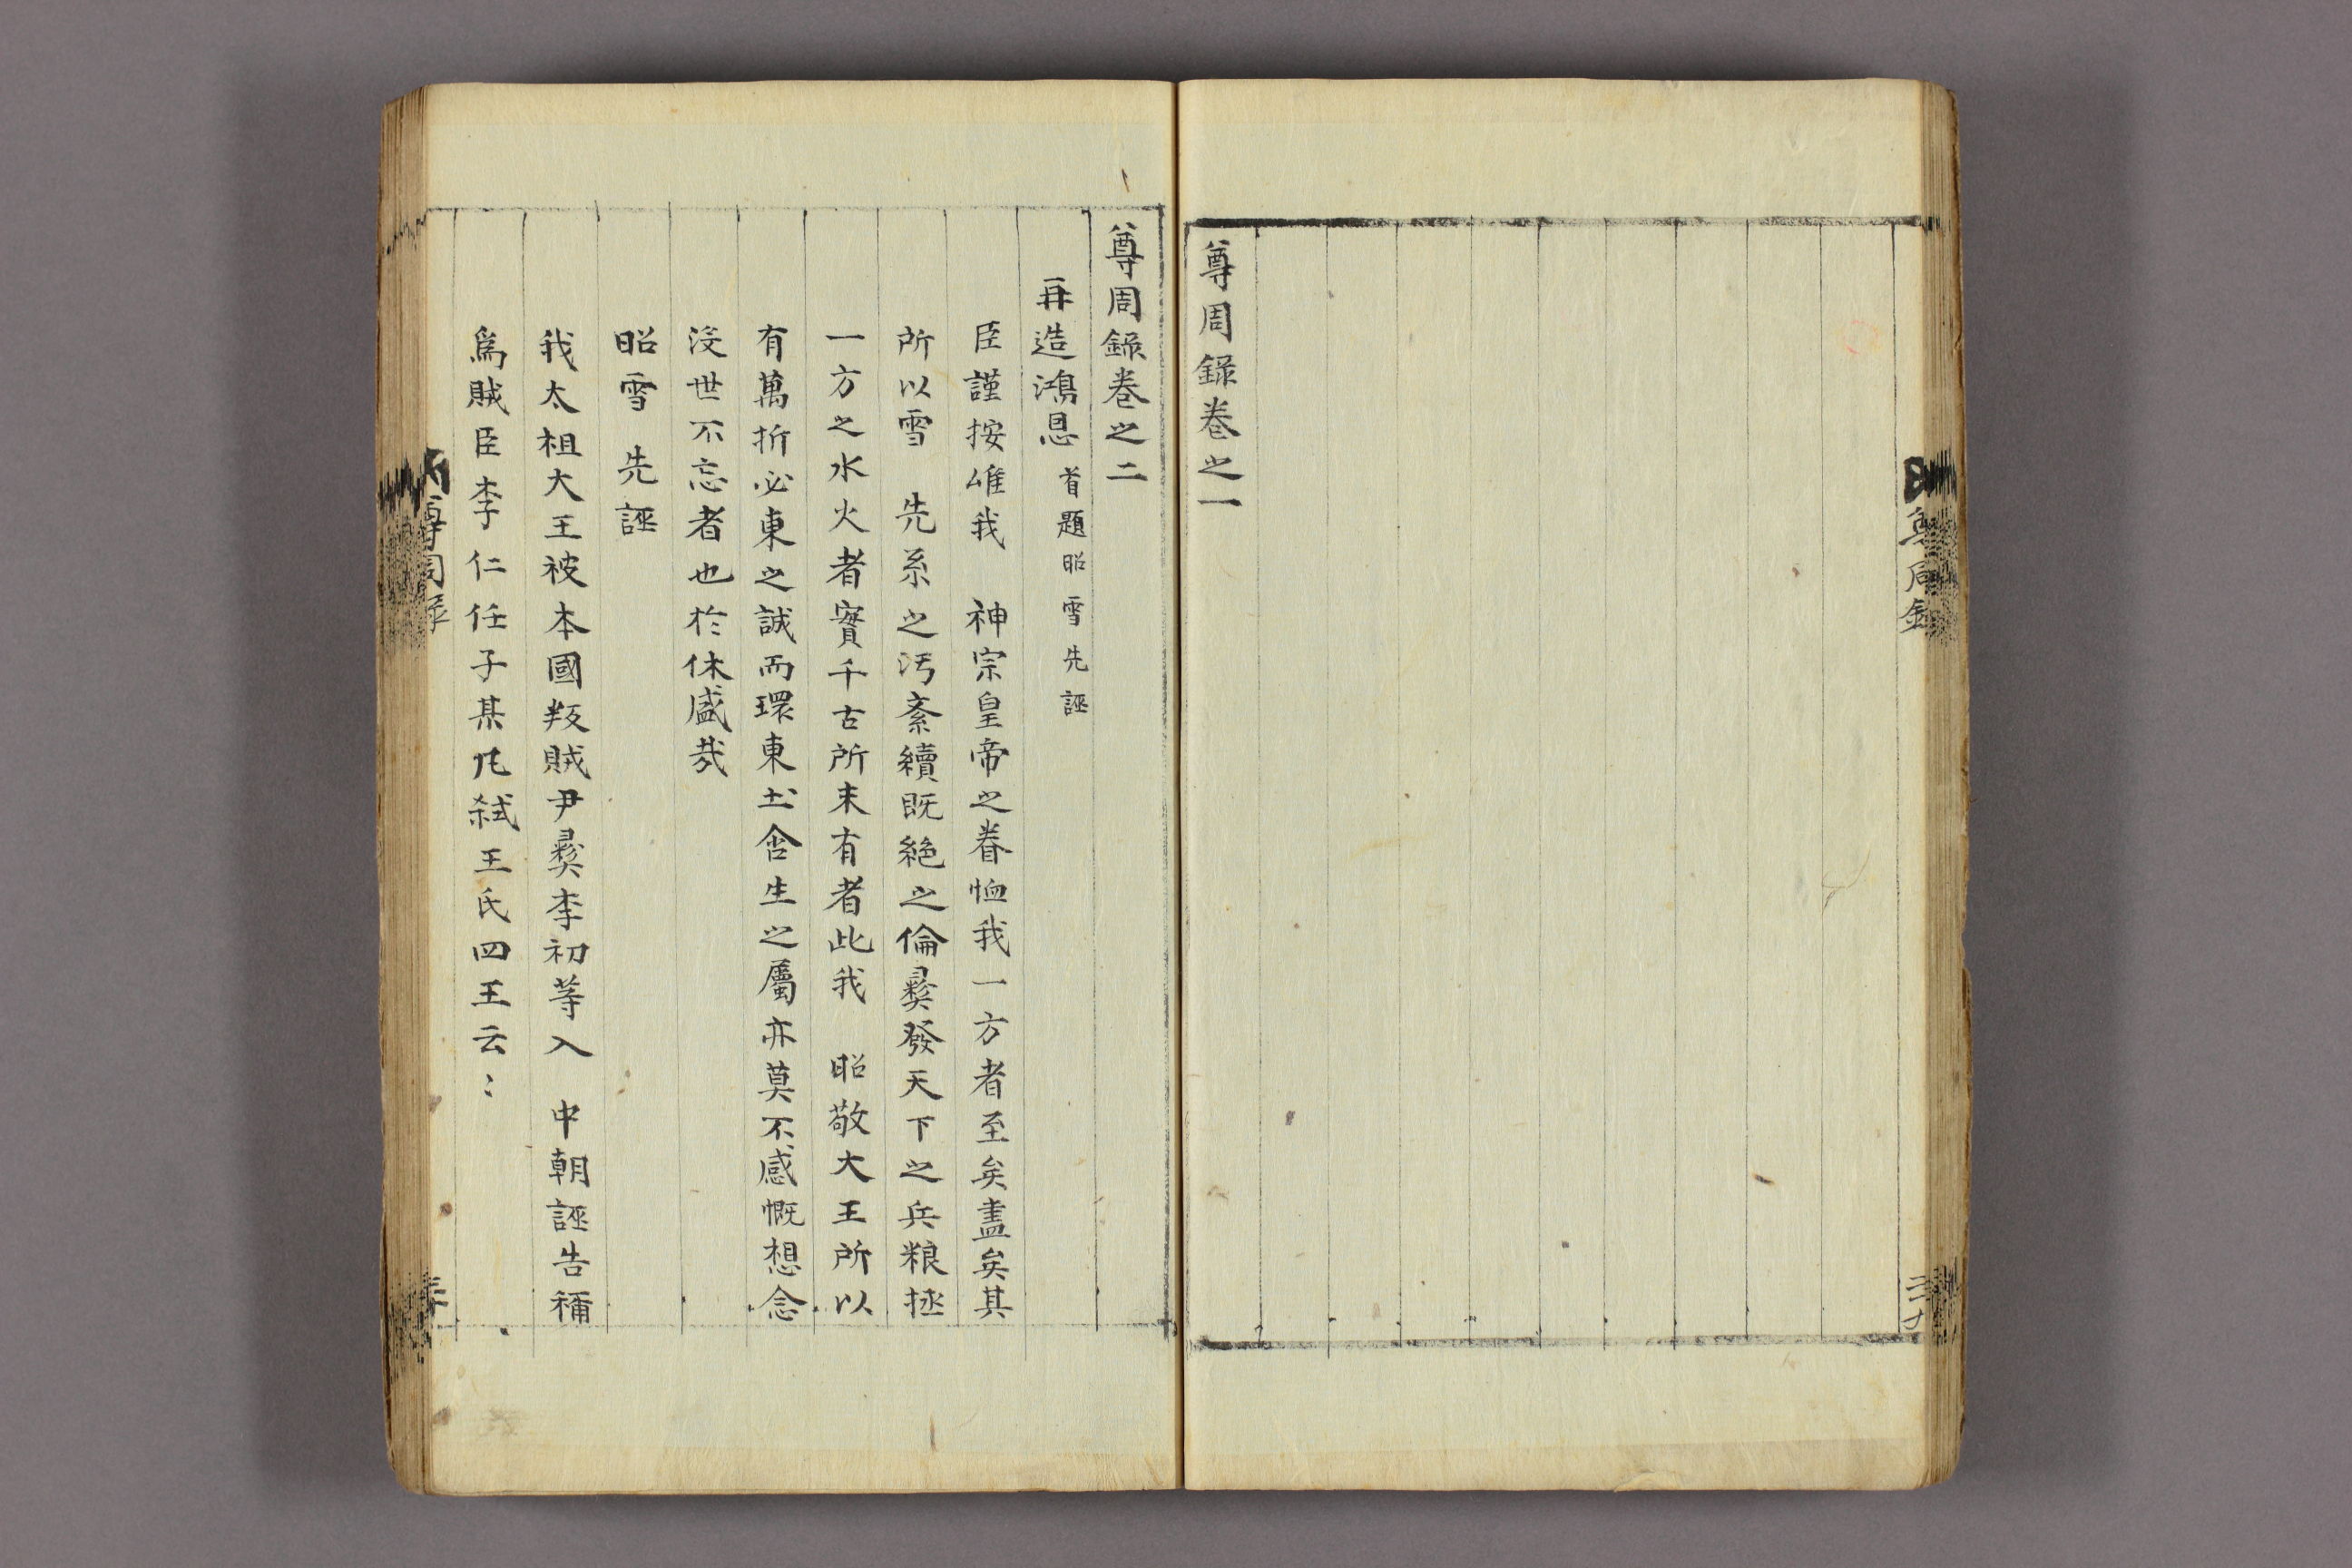 尊周錄卷之一
尊周錄卷之二
再造鴻恩 首題昭雪先誣
臣謹按惟我 神宗皇帝之眷恤我一方者至矣盡矣其
所以雪 先系之汚紊續既絶之倫彛發天下之兵粮拯
一方之水火者實千古所未有者此我 昭敬大王所以
有萬折必東之誠而環東土含生之屬亦莫不感慨想念
没世不忘者也於休盛哉
昭雪 先誣
我太祖大王被本國叛賊尹彛李初等入 中朝誣告稱
爲賊臣李仁任子某凡弑王氏四王云〻
尊周錄